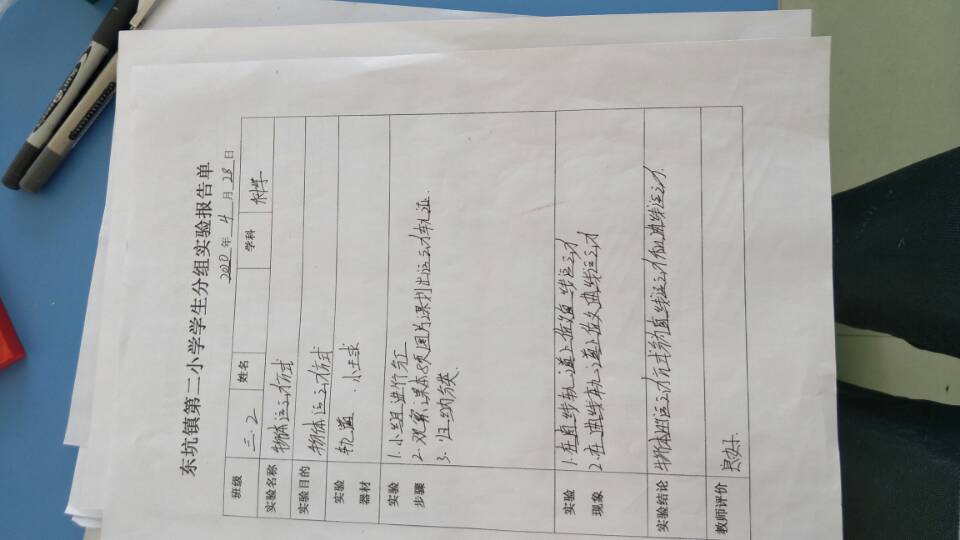 东坑镇第二小学学生分组实验报告单
2020年4月28日
班级 三.2 姓名 学科 科学
实验名称 物体运动方式
实验目的 物体运动方式
实验器材 轨道、小球
实验步骤 1.小组进行分工
2.观察课本8页图片课划出运动轨迹.
3.归纳分类.
实验现象 1.在直线轨道上做直线运动
2.在曲线轨道上做曲线运动
实验结论 物体的运动方式有直线运动和曲线运动.
教师评价 良好.